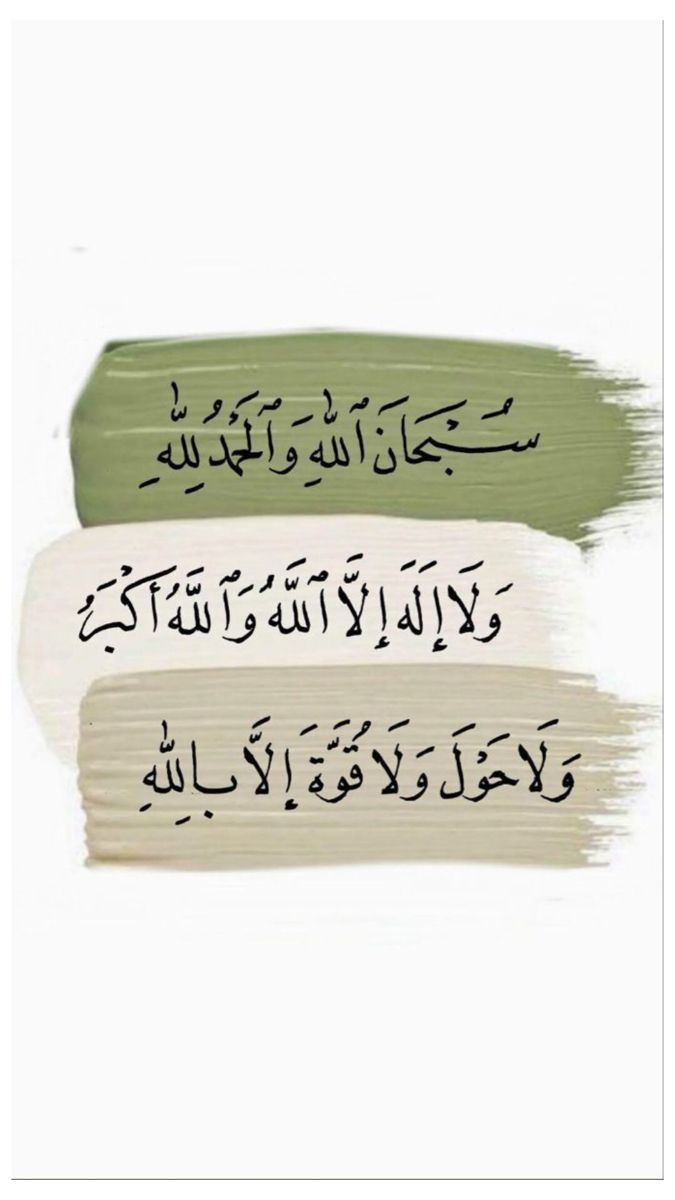 سُبْحَانَ ٱللَّٰهِ وَٱلْحَمْدُ لِلَّٰهِ
وَلَا إِلَٰهَ إِلَّا ٱللَّهُ وَٱللَّهُ أَكْبَرُ
وَلَا حَوْلَ وَلَا قُوَّةَ إِلَّا بِاللَّٰهِ